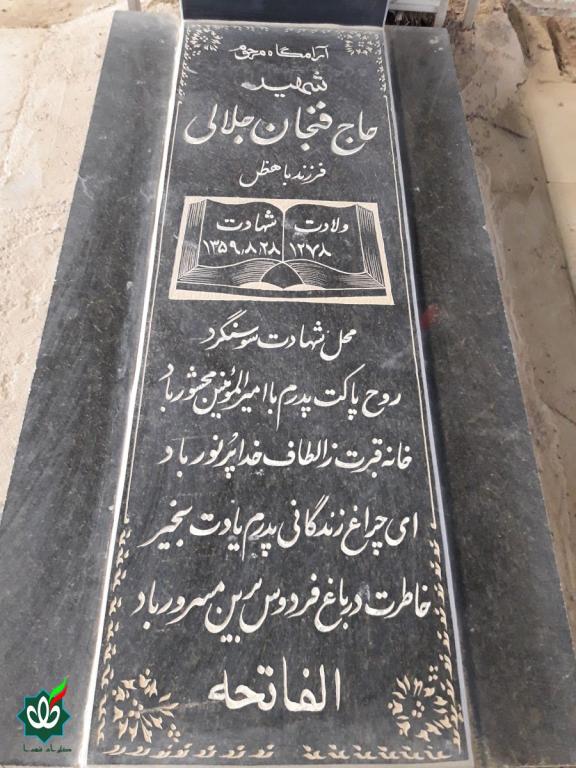 آرامگاه مرحوم
شهید
حاج فنجان جلالی
فرزند باهظل
ولادت شهادت
۱۲۷۸ ۱۳۵۹.۸.۲۸
محل شهادت سوسنگرد
روح پاکت پدرم با امیرالمؤمنین محشور باد
خانه قبرت ز الطاف خدا پُر نور باد
ای چراغ زندگانی پدرم یادت بخیر
خاطرت در باغ فردوس برین مسرور باد
الفاتحه